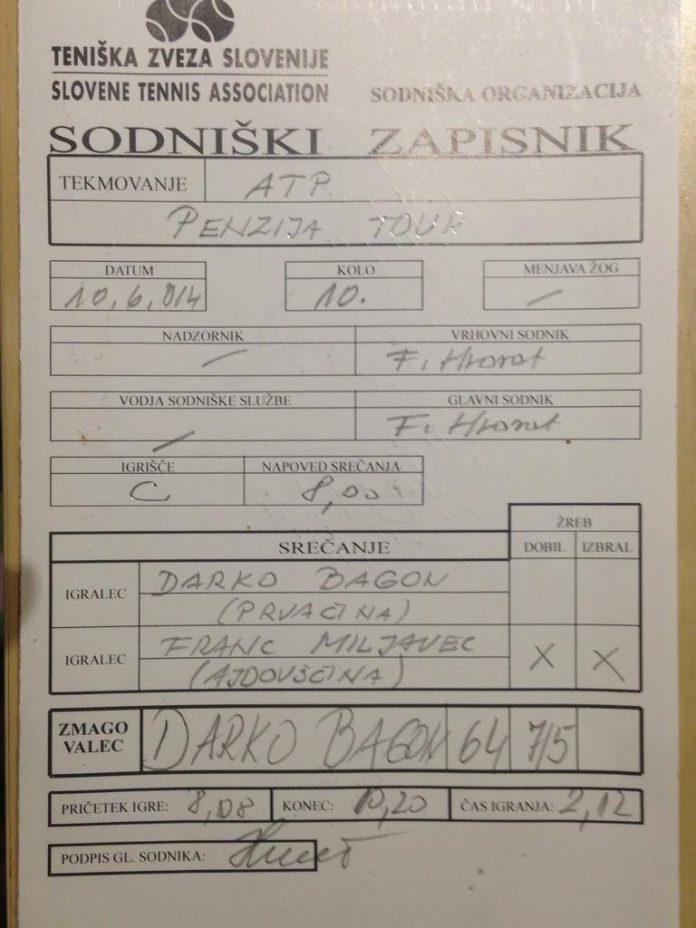 TENIŠKA ZVEZA SLOVENIJE
SLOVENE TENNIS ASSOCIATION
SODNIŠKA ORGANIZACIJA
SODNIŠKI ZAPISNIK
TEKMOVANJE ATP
PENZIJA TOUR
DATUM KOLO MENJAVA ŽOG
10.6.014 10. —
NADZORNIK VRHOVNI SODNIK
— F. Hrovat
VODJA SODNIŠKE SLUŽBE GLAVNI SODNIK
— F. Hrovat
IGRIŠČE NAPOVED SREČANJA
C 8,00
ŽREB
SREČANJE DOBIL IZBRAL
IGRALEC DARKO BAGON
(PRVAČINA)
IGRALEC FRANC MILJAVEC X X
(AJDOVŠČINA)
ZMAGO
VALEC DARKO BAGON 64 7/5
PRIČETEK IGRE: 8,08 KONEC: 10,20 ČAS IGRANJA: 2,12
PODPIS GL. SODNIKA: